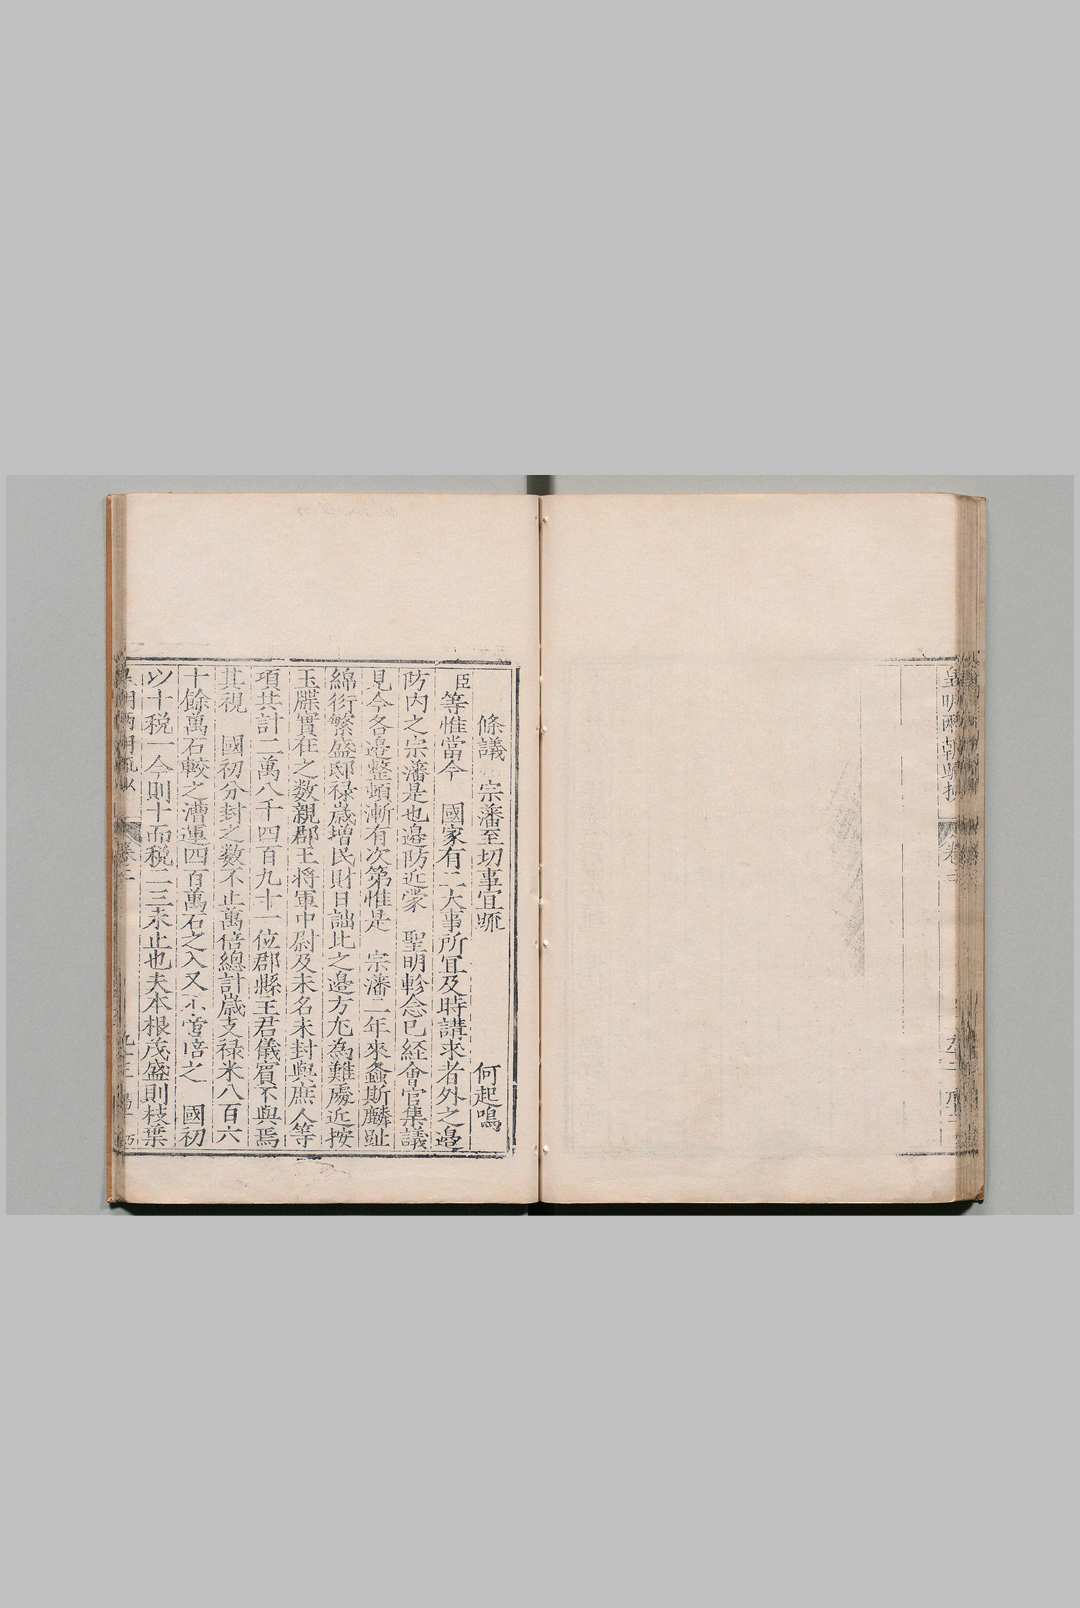 皇明兩朝疏抄 卷三
條議 宗藩至切事宜疏 何起鳴
臣等惟當今 國家有二大事所宜及時講求者外之邊
防内之宗藩是也邊防近蒙 聖明軫念已經會官集議
見今各邊整頓漸有次第惟是 宗藩二年來螽斯麟趾
綿衍繁盛邸禄歲增民財日詘比之邊方尤為難處近按
玉牒實在之数親郡王將軍中尉及未名未封與庶人等
項共計二萬八千四百九十一位郡縣主君儀賓不與焉
其視 國初分封之数不止萬倍總計歲支禄米八百六
十餘萬石較之漕運四百萬石之入又不啻倍之 國初
以十稅一今則十而稅二三未止也夫本根茂盛則枝葉